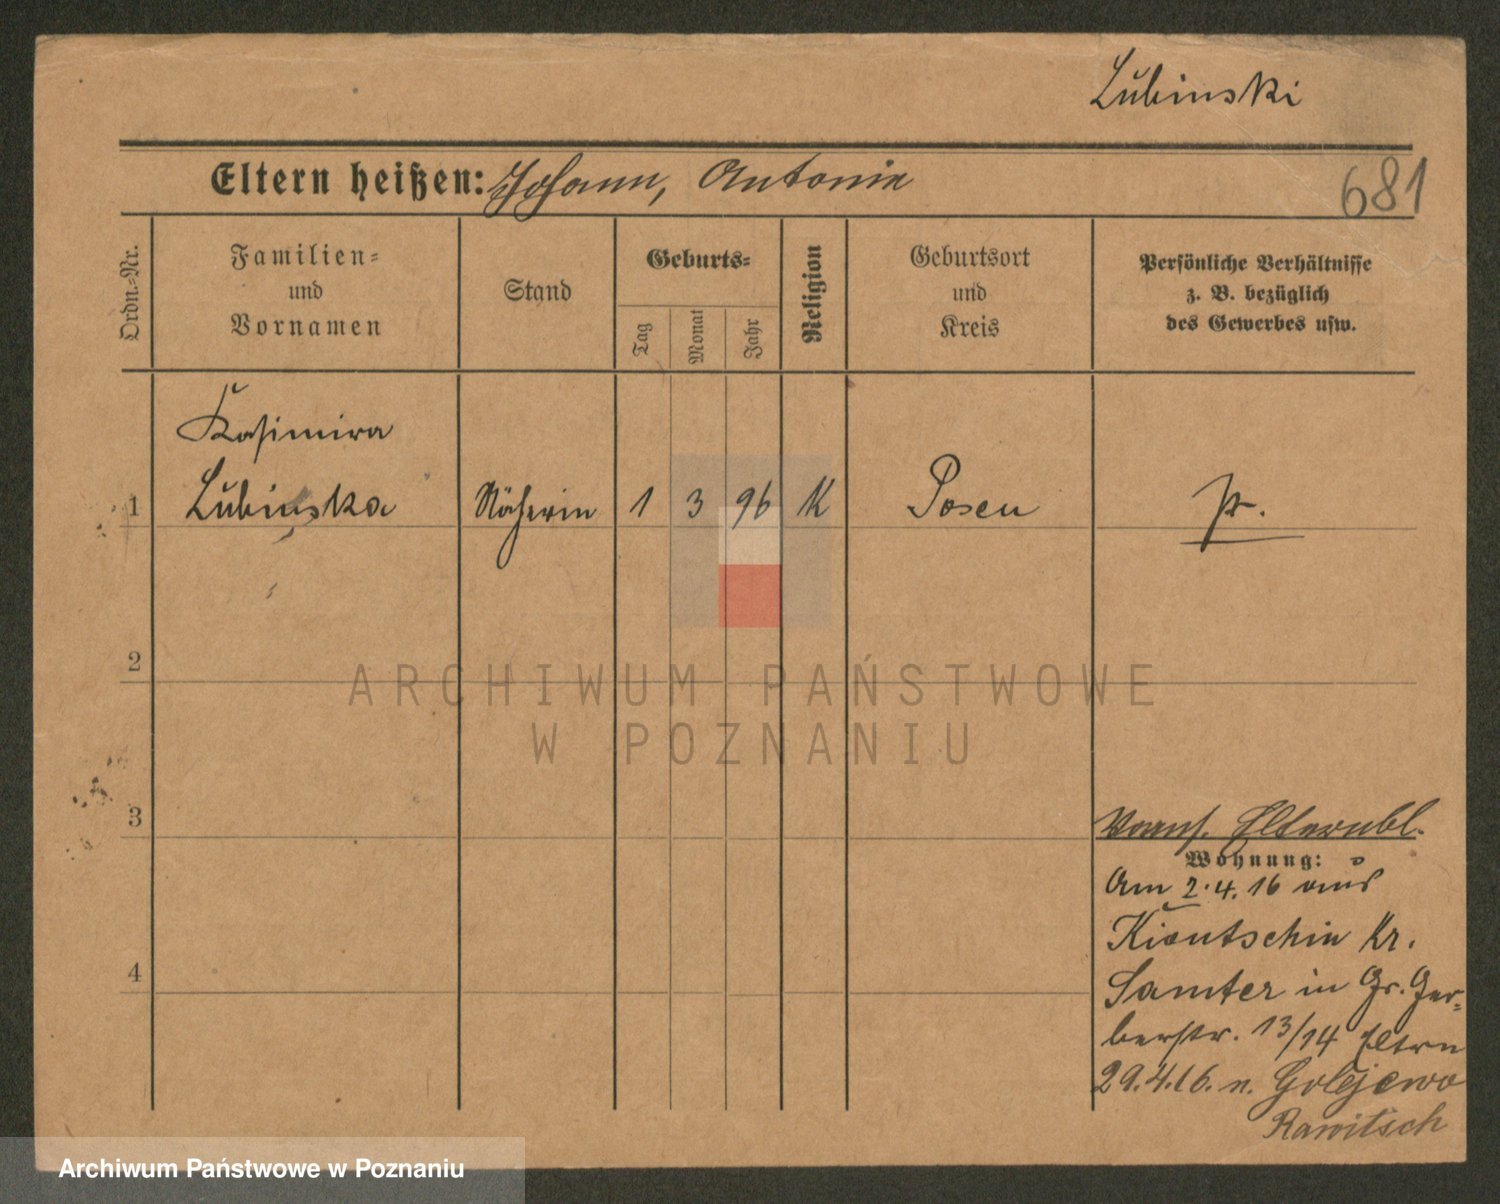 Lubinski
Eltern heißen: Johann, Antonie
681
Ordn.-Nr.
Familien-
und
Vornamen
Stand
Geburts-
Tag
Monat
Jahr
Religion
Geburtsort
und
Kreis
Persönliche Verhältnisse
z. B. bezüglich
des Gewerbes usw.
Kasimira
1 Lubinska Näherin 1 3 96 K Posen pr.
2
ARCHIWUM PAŃSTWOWE
W POZNANIU
3
Elternbl.
Wohnung:
Am 2.4.16 aus
Kiontschin Kr.
Samter in Gr. Ger-
berstr. 13/14 Eltern
29.4.16. n. Golejewo
Rawitsch
4
Archiwum Państwowe w Poznaniu